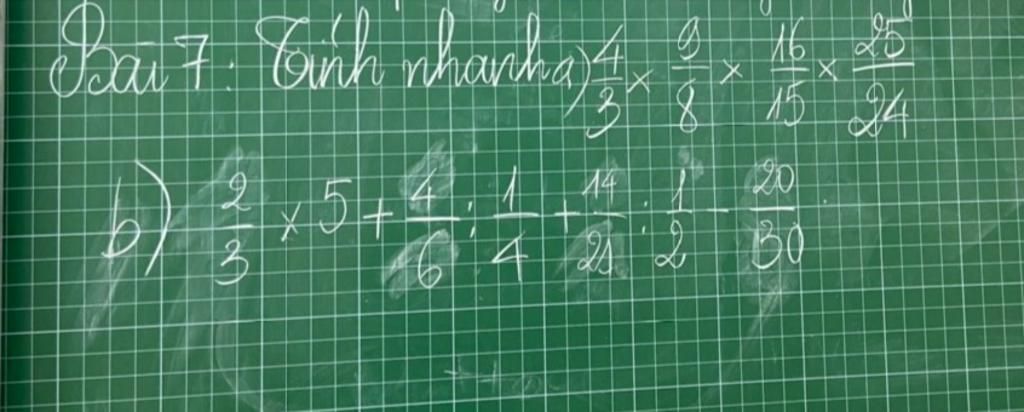 Bài 7: Tính nhanh a) 4/3 × 9/8 × 16/15 × 25/24
b) 2/3 × 5 + 4/6 : 1/4 + 14/21 : 1/2 - 20/30